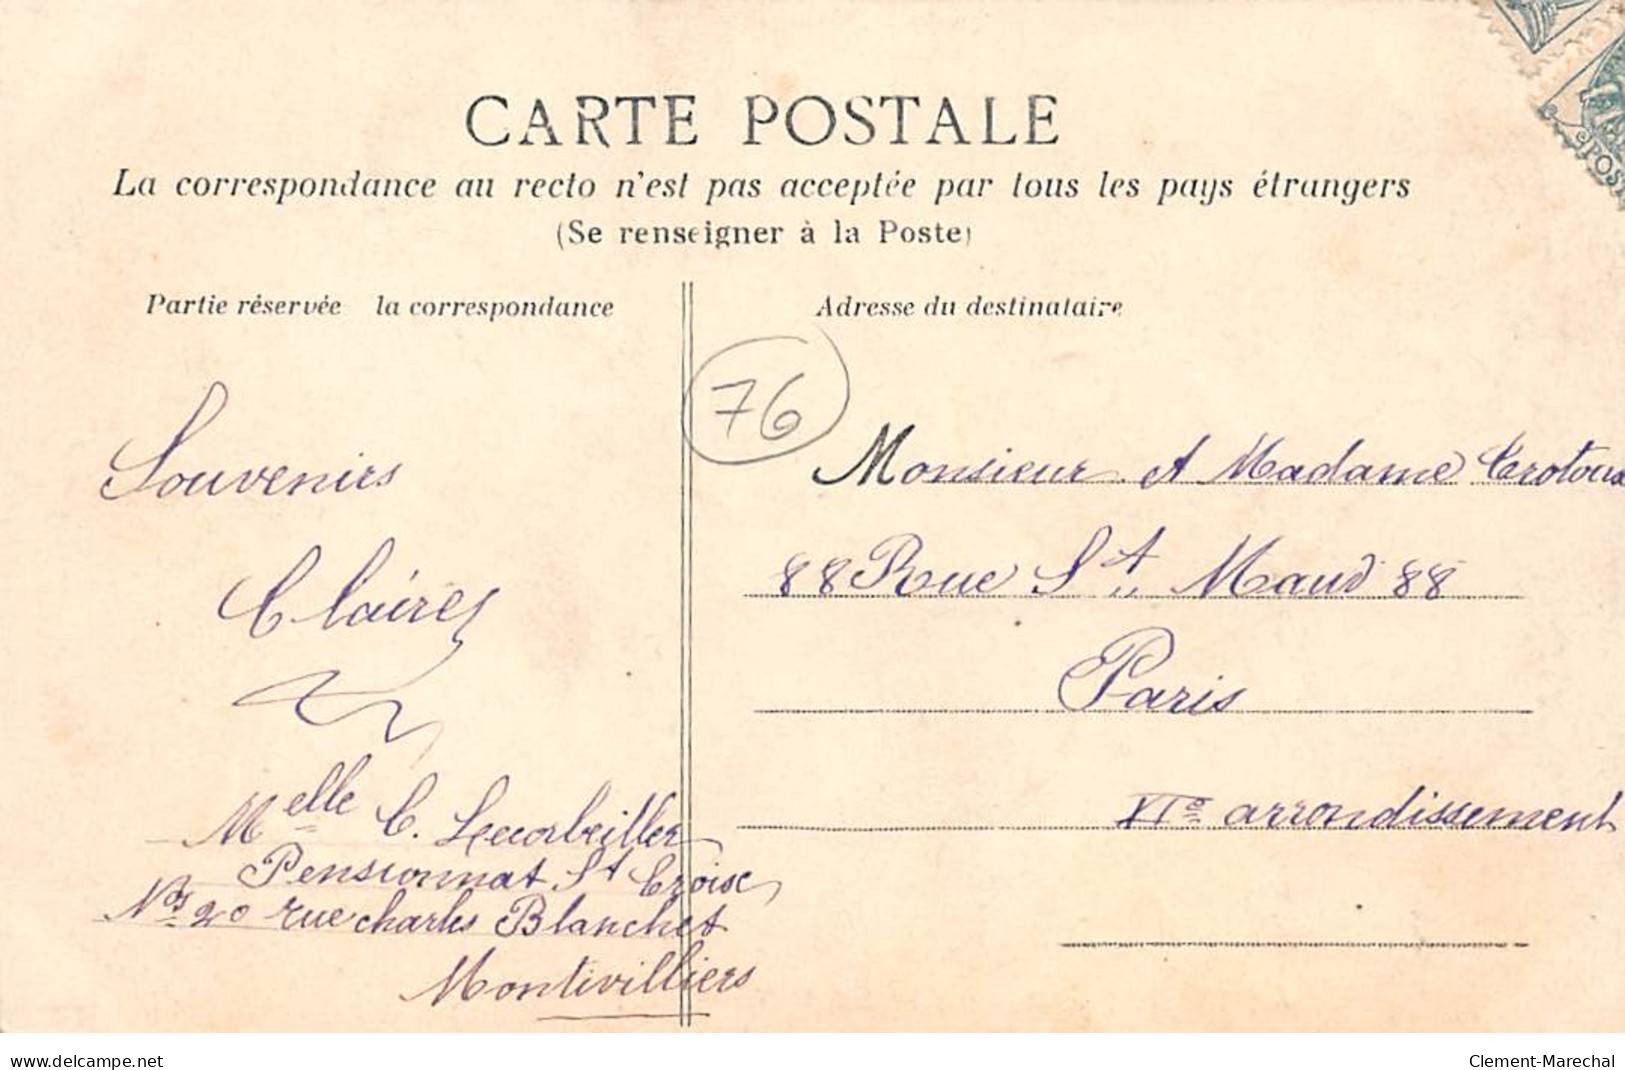 CARTE POSTALE
La correspondance au recto n'est pas acceptée par tous les pays étrangers
(Se renseigner à la Poste)
Partie réservée la correspondance
Adresse du destinataire
76
Souvenirs
Claires
Melle C. Lecorbeiller
Pensionnat St Croise
Nos 20 rue charles Blanchet
Montivilliers
Monsieur et Madame Crotoux
88 Rue St Maud 88
Paris
XIe arrondissement
POST
www.delcampe.net
Clement-Marechal